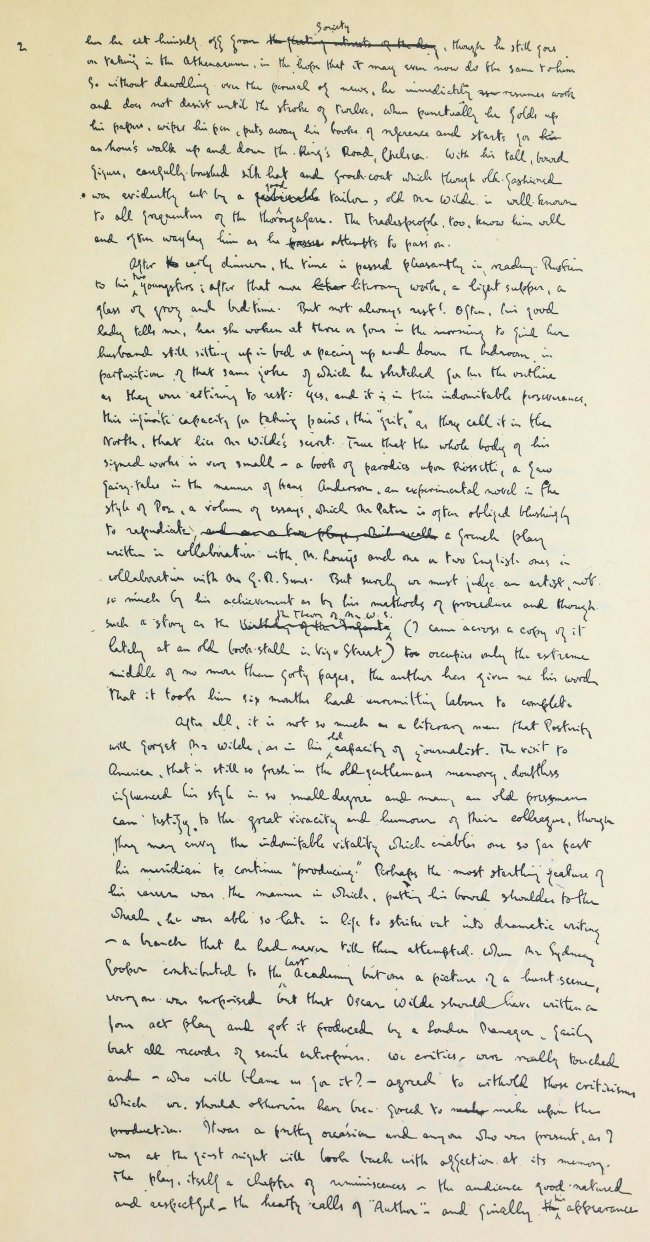 2
Society
has he cut himself off from the fleeting interests of the day, though he still goes
on taking in the Athenaeum, in the hope that it may even now do the same to him
So without dawdling over the perusal of news, he immediately resumes work
and does not desist until the stroke of twelve, when punctually he folds up
his papers, wipes his pen, puts away his books of reference and starts for his
an hour's walk up and down the King's Road, Chelsea. With his tall, bowed
figure, carefully-brushed silk hat and frock-coat which though old-fashioned
was evidently cut by a good fashionable tailor, old Mr Wilde is well-known
to all frequenters of the thoroughfare. The tradespeople, too, know him well
and often waylay him as he passes attempts to pass on.
After early dinner, the time is passed pleasantly in reading Ruskin
to his two youngsters; after that more literary work, a light supper, a
glass of grog and bed-time. But not always rest! Often, his good
lady tells me, has she woken at three or four in the morning to find her
husband still sitting up in bed or pacing up and down the bedroom, in
parturition of that same joke of which he sketched for her the outline
as they were retiring to rest: yes, and it is in this indomitable perseverance,
this infinite capacity for taking pains, this "grit," as they call it in the
North, that lies Mr Wilde's secret. True that the whole body of his
signed works is very small — a book of parodies upon Rossetti, a few
fairy-tales in the manner of Hans Anderson, an experimental novel in the
style of Poe, a volume of essays, which Mr Pater is often obliged blushingly
to repudiate, and one or two plays, which a French play
written in collaboration with M. Louÿs and one or two English ones in
collaboration with Mr G.R. Sims. But surely we must judge an artist, not
so much by his achievement as by his methods of procedure and though
such a story as the Birthday of the Infanta The Theory of Mr W.S. (I came across a copy of it
lately at an old book-stall in Vigo Street) occupies only the extreme
middle of no more than forty pages, the author has given me his word
that it took him six months hard unremitting labour to complete.
After all, it is not so much as a literary man that Posterity
will forget Mr Wilde, as in his old capacity of journalist. The visit to
America, that is still so fresh in the old gentleman's memory, doubtless
influenced his style in no small degree and many an old pressman
can testify to the great vivacity and humour of their colleague, though
they may envy the indomitable vitality which enables one so far past
his meridian to continue "producing." Perhaps the most startling feature of
his career was the manner in which, putting his bowed shoulder to the
wheel, he was able so late in life to strike out into dramatic writing
— a branch that he had never till then attempted. When Mr Sydney
Cooper contributed to the last Academy but one a picture of a hunt-scene,
everyone was surprised but that Oscar Wilde should have written a
four act play and got it produced by a London Manager, fairly
beat all records of senile enterprise. We critics, were really touched
and — who will blame us for it? — agreed to withold those criticisms
which we should otherwise have been forced to make upon the
production. It was a pretty occasion and anyone who was present, as I
was at the first night will look back with affection at its memory.
The play, itself a chapter of reminiscences — the audience good-natured
and respectful — the hearty calls of "Author" — and finally the his appearance